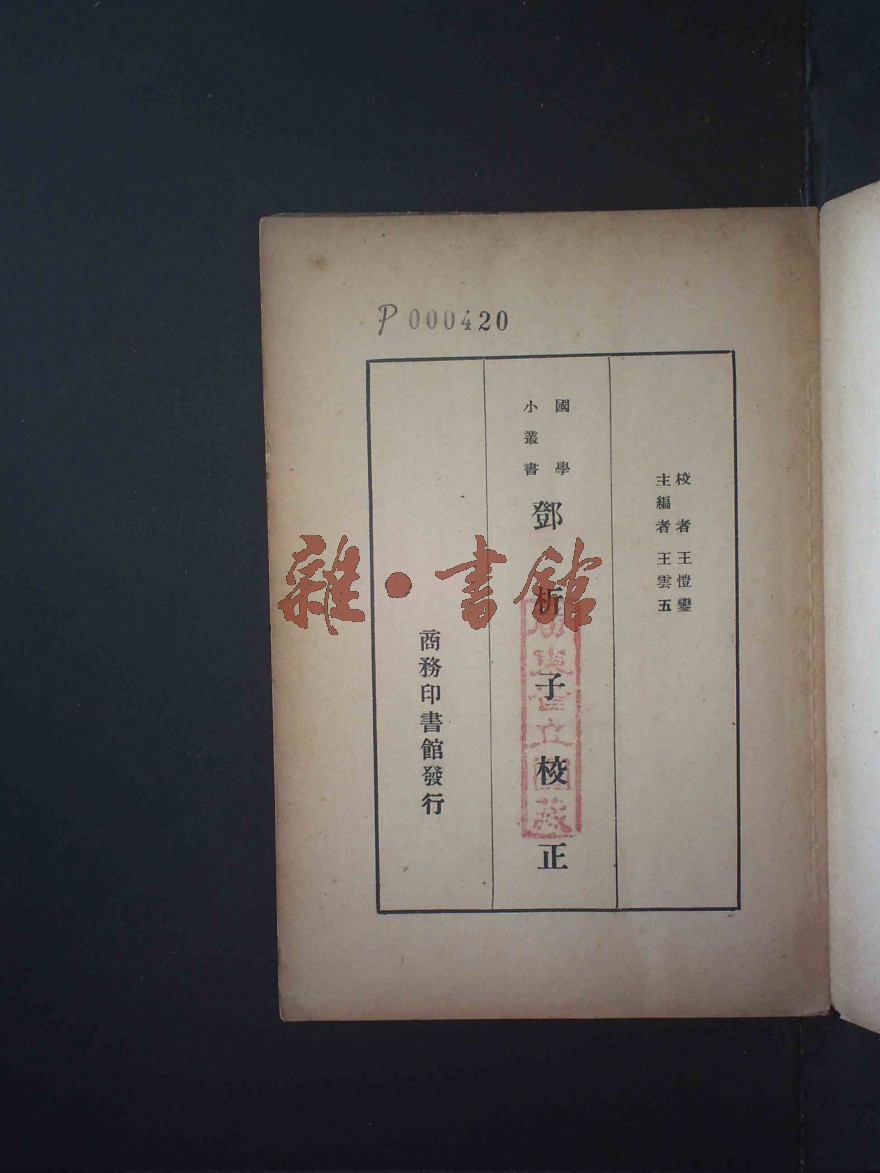 P 000420
校者 王愷鑾
主編者 王雲五
國學
小叢書
鄧析子校正
商務印書館發行
雜·書館